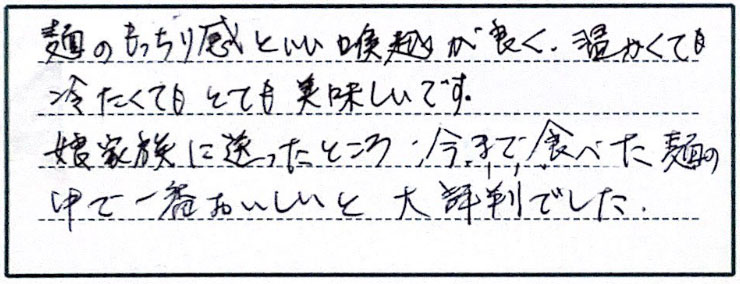 麺のもっちり感といい喉越が良く、温かくても
冷たくてもとても美味しいです。
娘家族に送ったところ、今まで食べた麺の
中で一番おいしいと大評判でした.